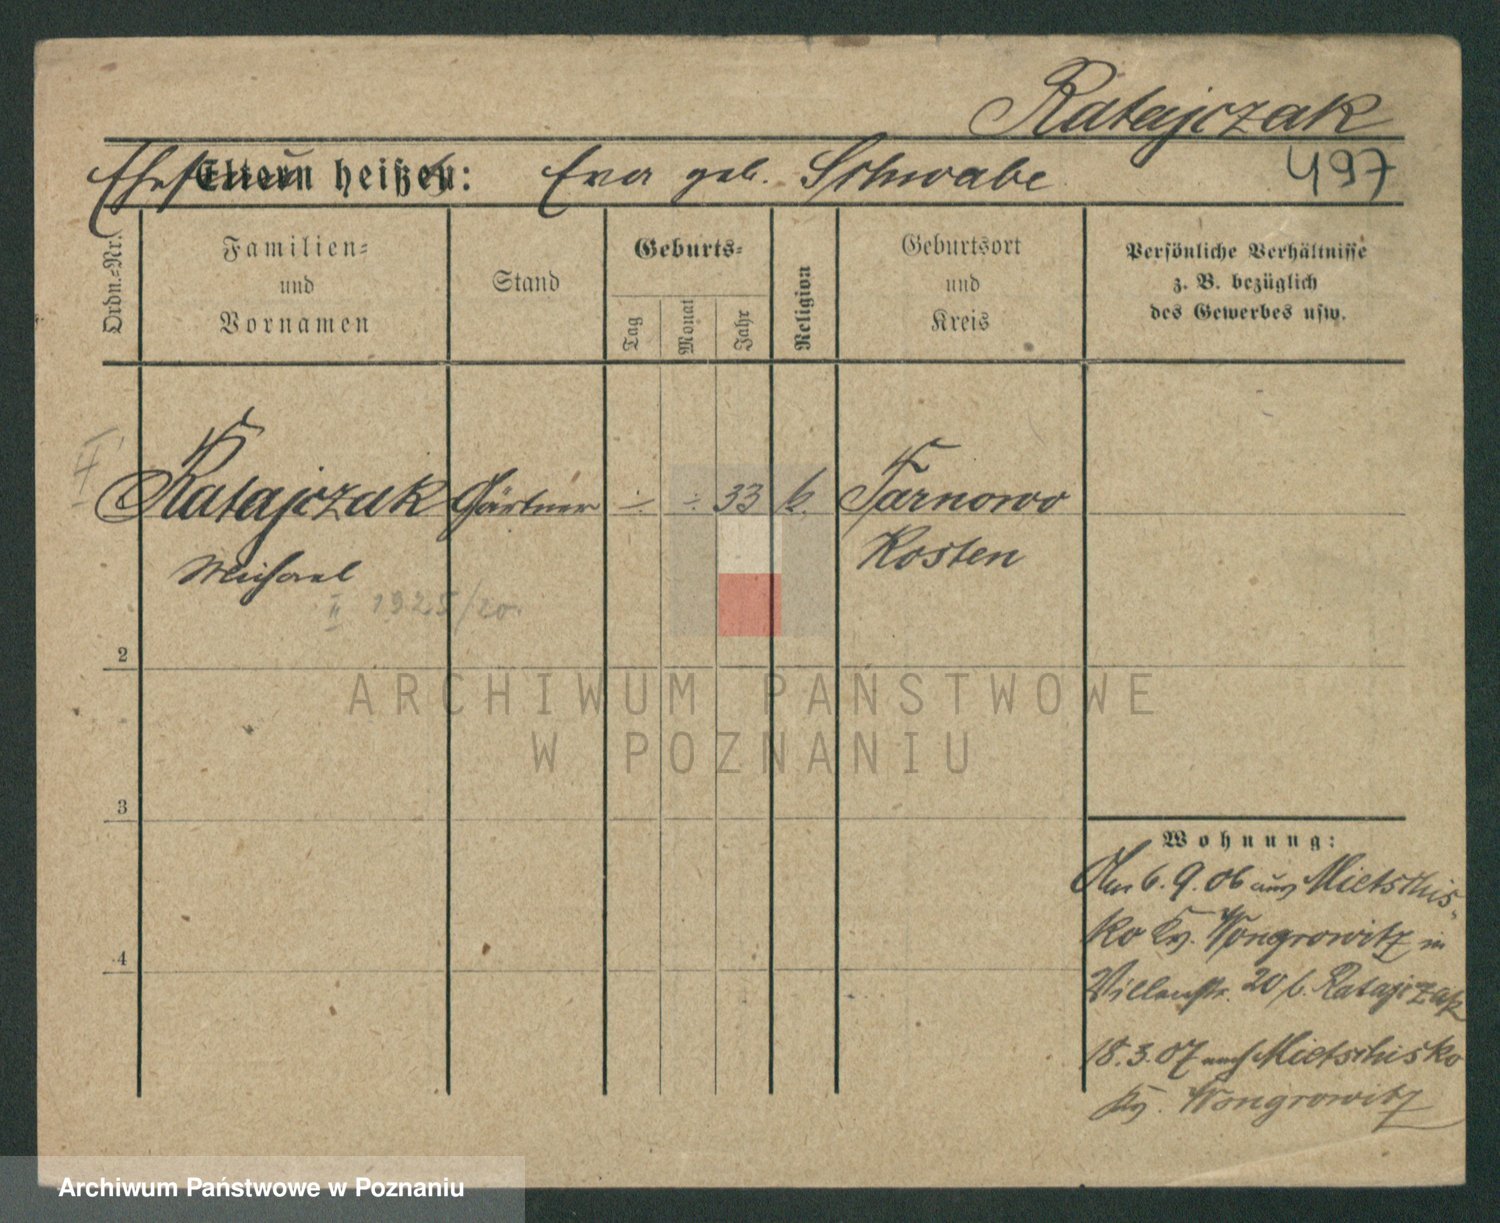 Ratajczak
Eltern heißen: Eva geb. Schwabe 497
Ordn.-Nr.
Familien-
und
Vornamen
Stand
Geburts-
Tag
Monat
Jahr
Religion
Geburtsort
und
Kreis
Persönliche Verhältnisse
z. B. bezüglich
des Gewerbes usw.
Ratajczak Gärtner ÷ ÷ 33 k. Tarnowo
Michael Kosten
II 1925/20.
2
3
4
Wohnung:
Am 6.9.06 aus Mietschis-
ko Kr. Wongrowitz in
Villenstr. 20 b. Ratajczak
18.3.07 nach Mietschisko
Kr. Wongrowitz
ARCHIWUM PAŃSTWOWE
W POZNANIU
Archiwum Państwowe w Poznaniu